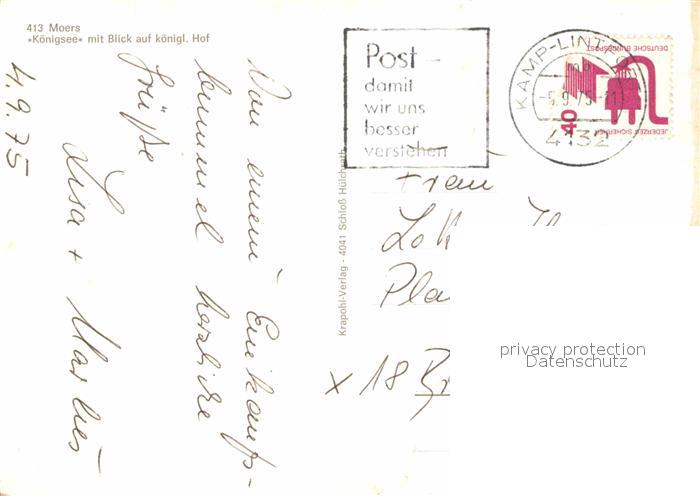 413 Moers
»Königsee« mit Blick auf königl. Hof
Von einem Einkaufs-
bummel herzliche
Grüße
Lisa + Marlies
4.9.75
Krapohl-Verlag - 4041 Schloß Hülchrath
Post –
damit
wir uns
besser
verstehen
KAMP-LINTF
-5.9.75-11
4132
DEUTSCHE BUNDESPOST
40
JEDERZEIT SICHERHEIT
Frau
Lot
Pla
x 18 Br
privacy protection
Datenschutz